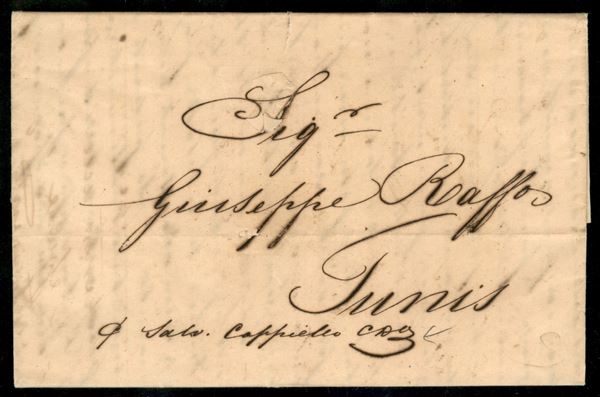 Sigr
Giuseppe Raffo
Tunis
Salv. Cappiello